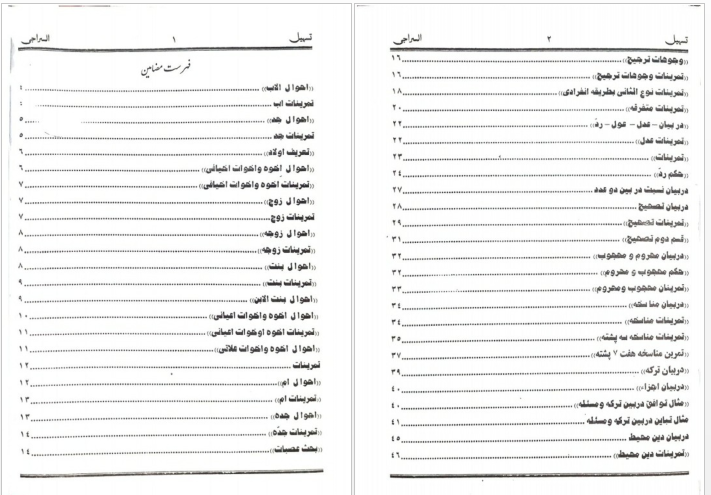 تسهیل ١ السراجی
فهرست مضامین
((احوال الاب)) ٤
تمرینات اب
((احوال جد)) ٥
تمرینات جد ٥
((تعریف اولاد)) ٦
((احوال اخوه واخوات اخیافی)) ٦
((تمرینات اخوه واخوات اخیافی)) ٧
((احوال زوج)) ٧
تمرینات زوج ٧
((احوال زوجه)) ٨
((تمرینات زوجه)) ٨
((احوال بنت)) ٨
((تمرینات بنت)) ٩
((احوال بنت الابن)) ٩
((احوال اخوه واخوات اعیانی)) ١٠
((تمرینات اخوه اوخوات اعیانی)) ١١
((احوال اخوه واخوات علاتی)) ١١
تمرینات ١٢
((احوال ام)) ١٢
((تمرینات ام)) ١٣
((احوال جده)) ١٣
((تمرینات جدّه)) ١٤
((بحث عصبات)) ١٤
تسهیل ٢ السراجی
((وجوهات ترجیح)) ١٦
((تمرینات وجوهات ترجیح)) ١٦
((تمرینات نوع الثانی بطریقه انفرادی)) ١٨
((تمرینات متفرقه)) ٢٠
((در بیان – عدل – عول – ردّ)) ٢٢
((تمرینات عدل)) ٢٢
((تمرینات)) ٢٣
((حکم ردّ)) ٢٤
دربیان نسبت در بین دو عدد ٢٧
دربیان تصحیح ٢٨
((تمرینات تصحیح)) ٢٩
((قسم دوم تصحیح)) ٣١
((دربیان محروم و محجوب)) ٣٢
((حکم محجوب و محروم)) ٣٢
((تمرینان محجوب ومحروم)) ٣٣
((دربیان مناسخه)) ٣٤
((تمرینات مناسخه)) ٣٤
((تمرینات مناسخه سه پشته)) ٣٥
((تمرین مناسخه هفت ٧ پشته)) ٣٧
((دربیان ترکه)) ٣٩
((دربیان اجزاء)) ٤٠
((مثال توافق دربین ترکه ومسئله)) ٤٠
مثال تباین دربین ترکه ومسئله ٤١
دربیان دین محیط ٤٥
((تمرینات دین محیط)) ٤٦